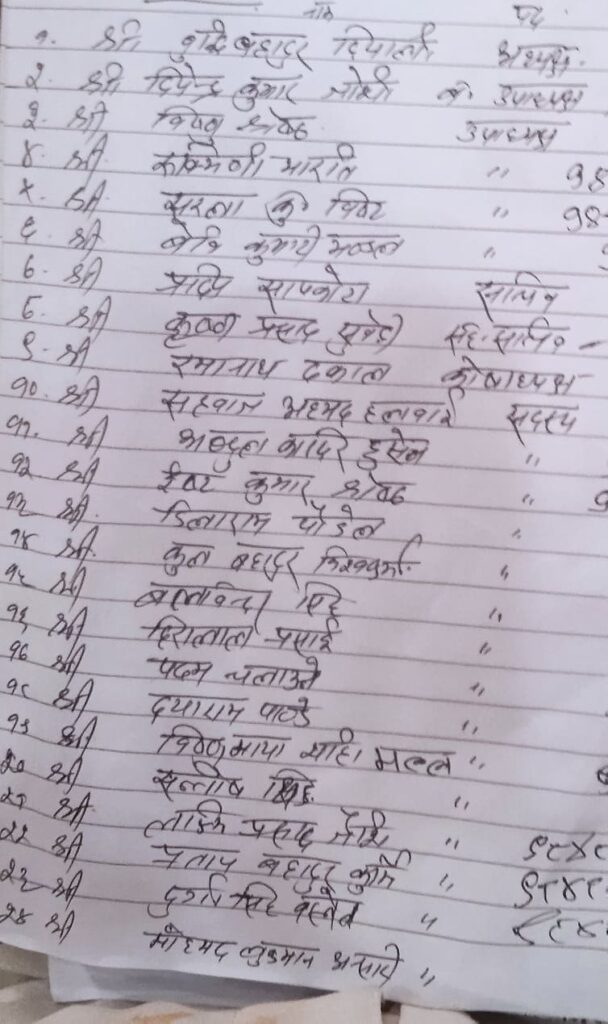 नाम पद
१. श्री बुद्धि बहादुर दियाली अध्यक्ष
२. श्री दिपेन्द्र कुमार जोशी व. उपाध्यक्ष
३. श्री विष्णु श्रेष्ठ उपाध्यक्ष
४. श्री रुक्मिणी भारति " 98
५. श्री सरला कु विष्ट " 98
६. श्री कुमारी मण्डल "
७. श्री प्रदिप सापकोटा सचिव
८. श्री कृष्ण प्रसाद सुवेदी सह-सचिव
९. श्री रमानाथ ढकाल कोषाध्यक्ष
१०. श्री अहमद हलवाई सदस्य
११. श्री अब्दुल कादिर हुसेन "
१२ श्री ईश्वर कुमार श्रेष्ठ "
१३ श्री. डिलाराम पौडेल "
१४ श्री. कुल बहादुर विश्वकर्मा "
१५ श्री सिंह "
१६ श्री हिरालाल प्रसाई "
१७ श्री पदम चलाउने "
१८ श्री दयाराम पाण्डे "
१९ श्री विष्णुमाया शाही मल्ल "
२० श्री सन्तोष सिंह "
२१ श्री. प्रसाद "
२२ श्री प्रताप बहादुर कुर्मि "
२३ श्री दुर्गा सिंह बस्नेत "
२४ श्री मोहमद लुकमान अन्सारी "